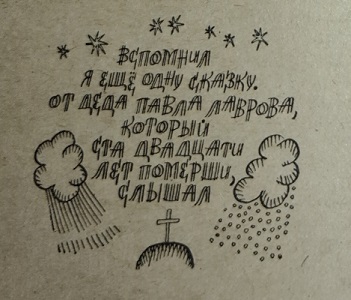 Вспомнил
я ещё одну сказку.
От деда Павла Лаврова,
который
ста двадцати
лет померши,
слышал